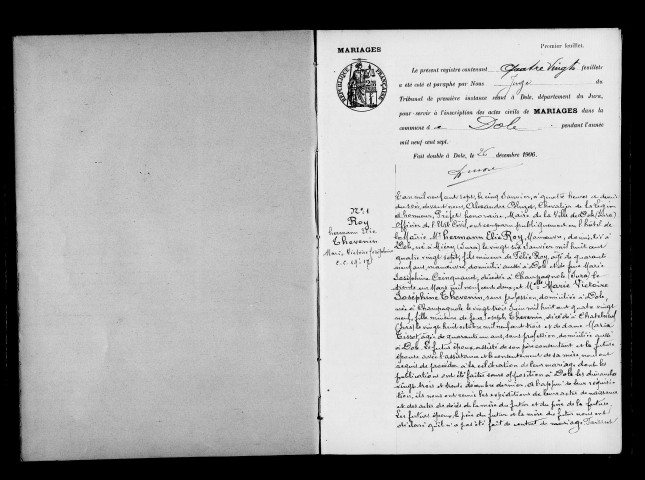 MARIAGES
Premier feuillet.
RÉPUBLIQUE FRANÇAISE
Le présent registre contenant quatre vingt feuillets
a été coté et paraphé par Nous Juge du
Tribunal de première instance séant à Dole, département du Jura,
pour servir à l'inscription des actes civils de MARIAGES dans la
commune d e Dole pendant l'année
mil neuf cent sept.
Fait double à Dole, le 26 décembre 1906.
N° 1
Roy
hermann Elie
Thevenin
Marie Victoire Joséphine
L'an mil neuf cent sept, le cinq Janvier, à quatre heures et demie
du soir, devant nous, Alexandre Chevalier de la légion
d'honneur, Préfet honoraire, Maire de la Ville de Dole (Jura)
Officier de l'Etat Civil, ont comparu publiquement en l'hôtel de
la Mairie Mr hermann Elie Roy, Manœuvre, domicilié à
Dole, né à (Jura) le vingt six Janvier mil huit cent
quatre vingt sept, fils mineur de Félix Roy, âgé de quarante
neuf ans, manœuvre, domicilié aussi à Dole et de feue Marie
Joséphine Crinquand, décédée à Champagnole (Jura) le
Mars mil neuf cent deux, et Melle Marie Victoire
Joséphine Thevenin, sans profession, domiciliée à Dole,
née à Champagnole le vingt trois Juin mil huit cent quatre vingt
neuf, fille mineure de feu Joseph Thevenin, décédé à Chatelneuf
(Jura) le vingt huit octobre mil neuf cent trois et de dame Marie
Tissot, âgée de quarante un ans, sans profession, domiciliée aussi
à Dole. Le futur époux, assisté de son père consentant et la future
épouse avec l'assistance et le consentement de sa mère, nous ont
requis de procéder à la célébration de leur mariage dont les
publications ont été faites sans opposition à Dole les dimanches
vingt trois et trente décembre dernier. A l'appui de leur réquisi-
tion, ils nous ont remis les expéditions de leurs actes de naissance
et des actes de décès de la mère du futur et du père de la future.
Les futurs époux, le père du futur et la mère de la future nous ont
déclaré qu'il n'a pas été fait de contrat de mariage.